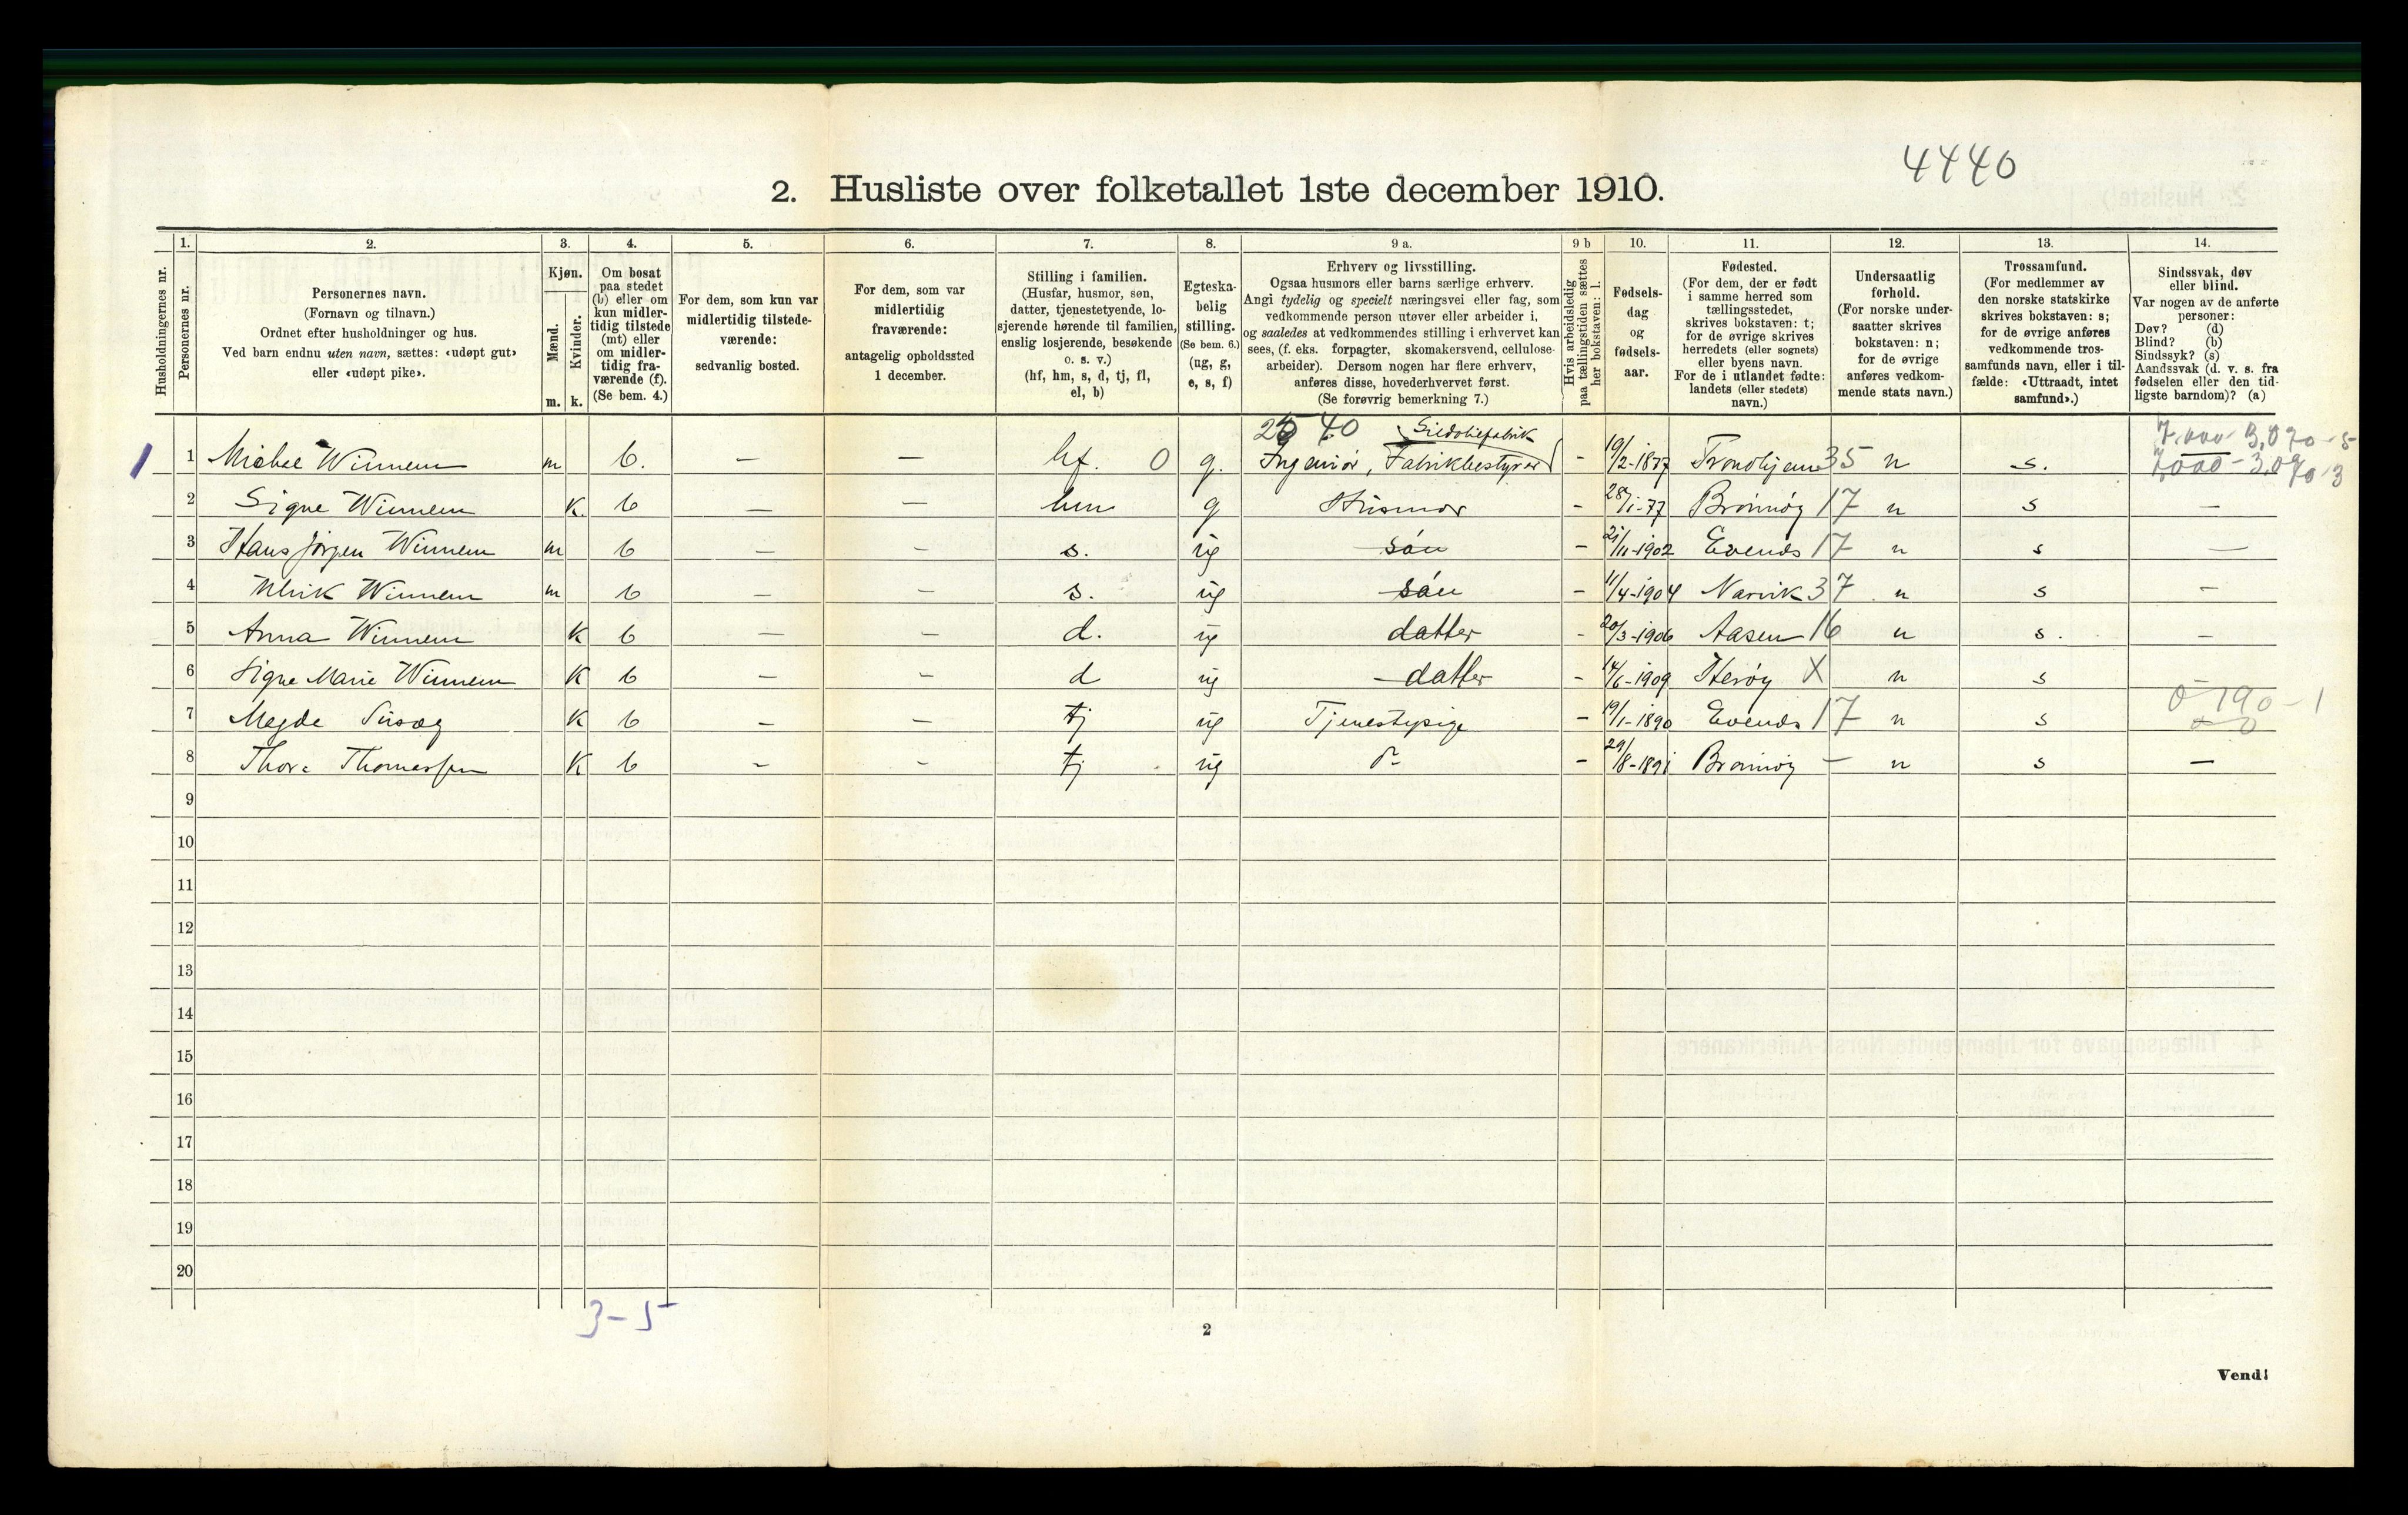 4440
2. Husliste over folketallet 1ste december 1910.
Husholdningernes nr.
1.
Personernes nr.
2.
Personernes navn.
(Fornavn og tilnavn.)
Ordnet efter husholdninger og hus.
Ved barn endnu uten navn, sættes: «udøpt gut»
eller «udøpt pike».
3.
Kjøn.
Mænd.
Kvinder.
m. k.
4.
Om bosat
paa stedet
(b) eller om
kun midler-
tidig tilstede
(mt) eller
om midler-
tidig fra-
værende (f).
(Se bem. 4.)
5.
For dem, som kun var
midlertidig tilstede-
værende:
sedvanlig bosted.
6.
For dem, som var
midlertidig
fraværende:
antagelig opholdssted
1 december.
7.
Stilling i familien.
(Husfar, husmor, søn,
datter, tjenestetyende, lo-
sjerende hørende til familien,
enslig losjerende, besøkende
o. s. v.)
(hf, hm, s, d, tj, fl,
el, b)
8.
Egteska-
belig
stilling.
(Se bem. 6.)
(ug, g,
e, s, f)
9 a.
Erhverv og livsstilling.
Ogsaa husmors eller barns særlige erhverv.
Angi tydelig og specielt næringsvei eller fag, som
vedkommende person utøver eller arbeider i,
og saaledes at vedkommendes stilling i erhvervet kan
sees, (f. eks. forpagter, skomakersvend, cellulose-
arbeider). Dersom nogen har flere erhverv,
anføres disse, hovederhvervet først.
(Se forøvrig bemerkning 7.)
9 b
Hvis arbeidsledig
paa tællingstiden sættes
her bokstaven: l.
10.
Fødsels-
dag
og
fødsels-
aar.
11.
Fødested.
(For dem, der er født
i samme herred som
tællingsstedet,
skrives bokstaven: t;
for de øvrige skrives
herredets (eller sognets)
eller byens navn.
For de i utlandet fødte:
landets (eller stedets)
navn.)
12.
Undersaatlig
forhold.
(For norske under-
saatter skrives
bokstaven: n;
for de øvrige
anføres vedkom-
mende stats navn.)
13.
Trossamfund.
(For medlemmer av
den norske statskirke
skrives bokstaven: s;
for de øvrige anføres
vedkommende tros-
samfunds navn, eller i til-
fælde: «Uttraadt, intet
samfund».)
14.
Sindssvak, døv
eller blind.
Var nogen av de anførte
personer:
Døv? (d)
Blind? (b)
Sindssyk? (s)
Aandssvak (d. v. s. fra
fødselen eller den tid-
ligste barndom)? (a)
40 Sildoliefabrik 7.000 3,070-5
1 1 Michel Winnem m b. — — hf. 0 g. Ingeniør, Fabrikbestyrer - 19/2-1877 Trondhjem 35 n s. 7000-3,070-3
2 Signe Winnem K. b — — hm g Husmor - 28/1-77 Brønnøy 17 n s —
3 Hans Jørgen Winnem m b — - s. ug søn - 21/11-1902 Evenes 17 n s —
4 Ulrik Winnem m b — - s. ug søn - 11/4-1904 Narvik 37 n s -
5 Anna Winnem K b — - d. ug datter - 20/3-1906 Aasen 16 n s. -
6 Signe Marie Winnem K b - - d ug datter - 14/6-1909 Herøy X n s -
7 Magda K b - - tj ug Tjenestepige - 19/1-1890 Evenes 17 n s 0-190-1
8 Thora Thomassen K b - - tj ug - 29/8-1891 Brønnøy — n s —
9
10
11
12
13
14
15
16
17
18
19
20
3-5
2
Vend!